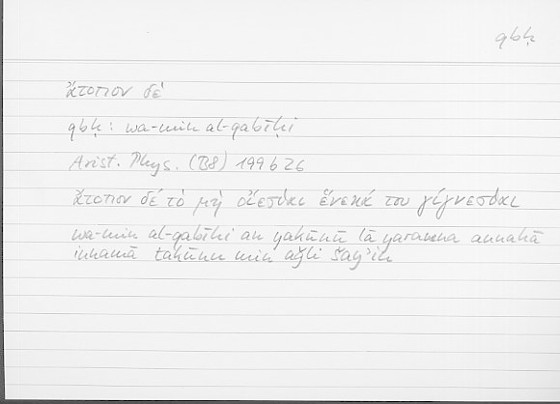 qbḥ
ἄτοπον δέ
qbḥ: wa-min al-qabīḥi
Arist. Phys. (B8) 199b26
ἄτοπον δέ τὸ μὴ οἴεσθαι ἕνεκά του γίγνεσθαι
wa-min al-qabīḥi an yakūnū lā yarawna annahā
innamā takūnu min aǧli šayʾin